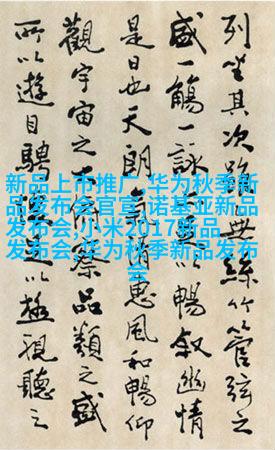 列坐其次絲竹管弦之
盛一觴一詠以暢敘幽情
是日也天朗氣清惠風和暢仰
觀宇宙之察品類之盛
所以遊目騁以極視聽之
新品上市推广,华为秋季新
品发布会官宣,诺基亚新品
发布会,小米2017新品
发布会,华为秋季新品发布
会